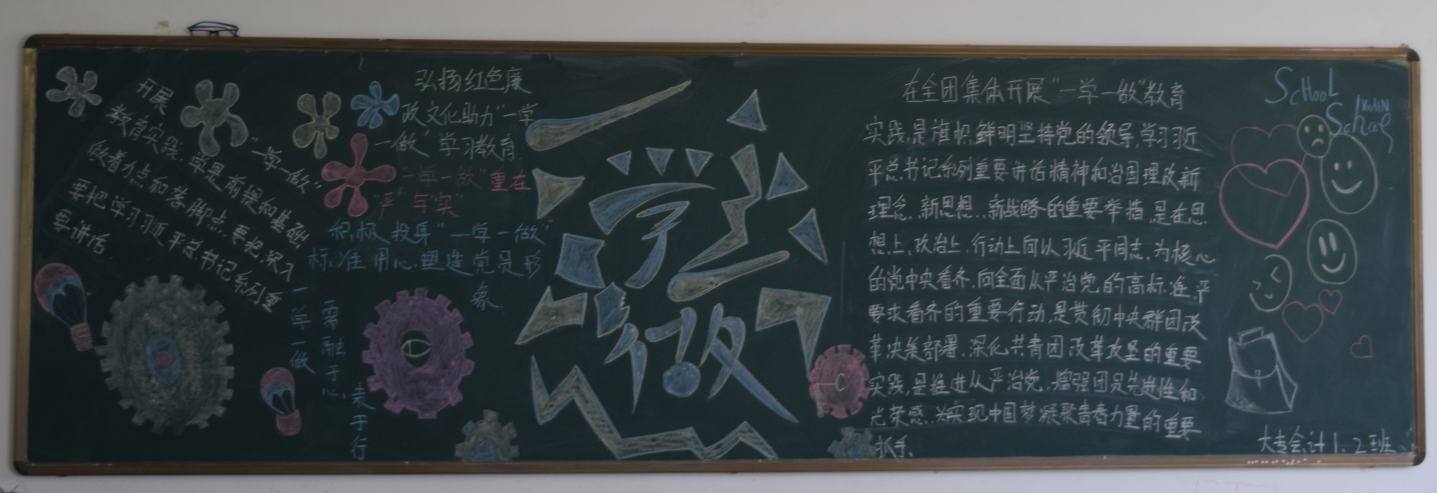 开展
"一学一做"
教育实践,学是前提和基础
做着力点和落脚点,要把深入
要把学习习近平总书记系列重
要讲话
弘扬红色廉
政文化助力"一学
一做"学习教育
"一学一做"重在
"严"与"实"
积极投身"一学一做"
标准用心塑造党员形
象
一学一做
需融于心
表于行
学
一做
在全团集体开展"一学一做"教育
实践,是旗帜鲜明坚持党的领导,学习习近
平总书记系列重要讲话精神和治国理政新
理念、新思想、新战略的重要举措,是在思
想上、政治上、行动上向以习近平同志为核心
的党中央看齐,向全面从严治党的高标准、严
要求看齐的重要行动,是贯彻中央群团改
革决策部署、深化共青团改革攻坚的重要
实践,是推进从严治党、增强团员先进性和
光荣感、为实现中国梦凝聚青春力量的重要
抓手。
School
School
大专会计1、2班